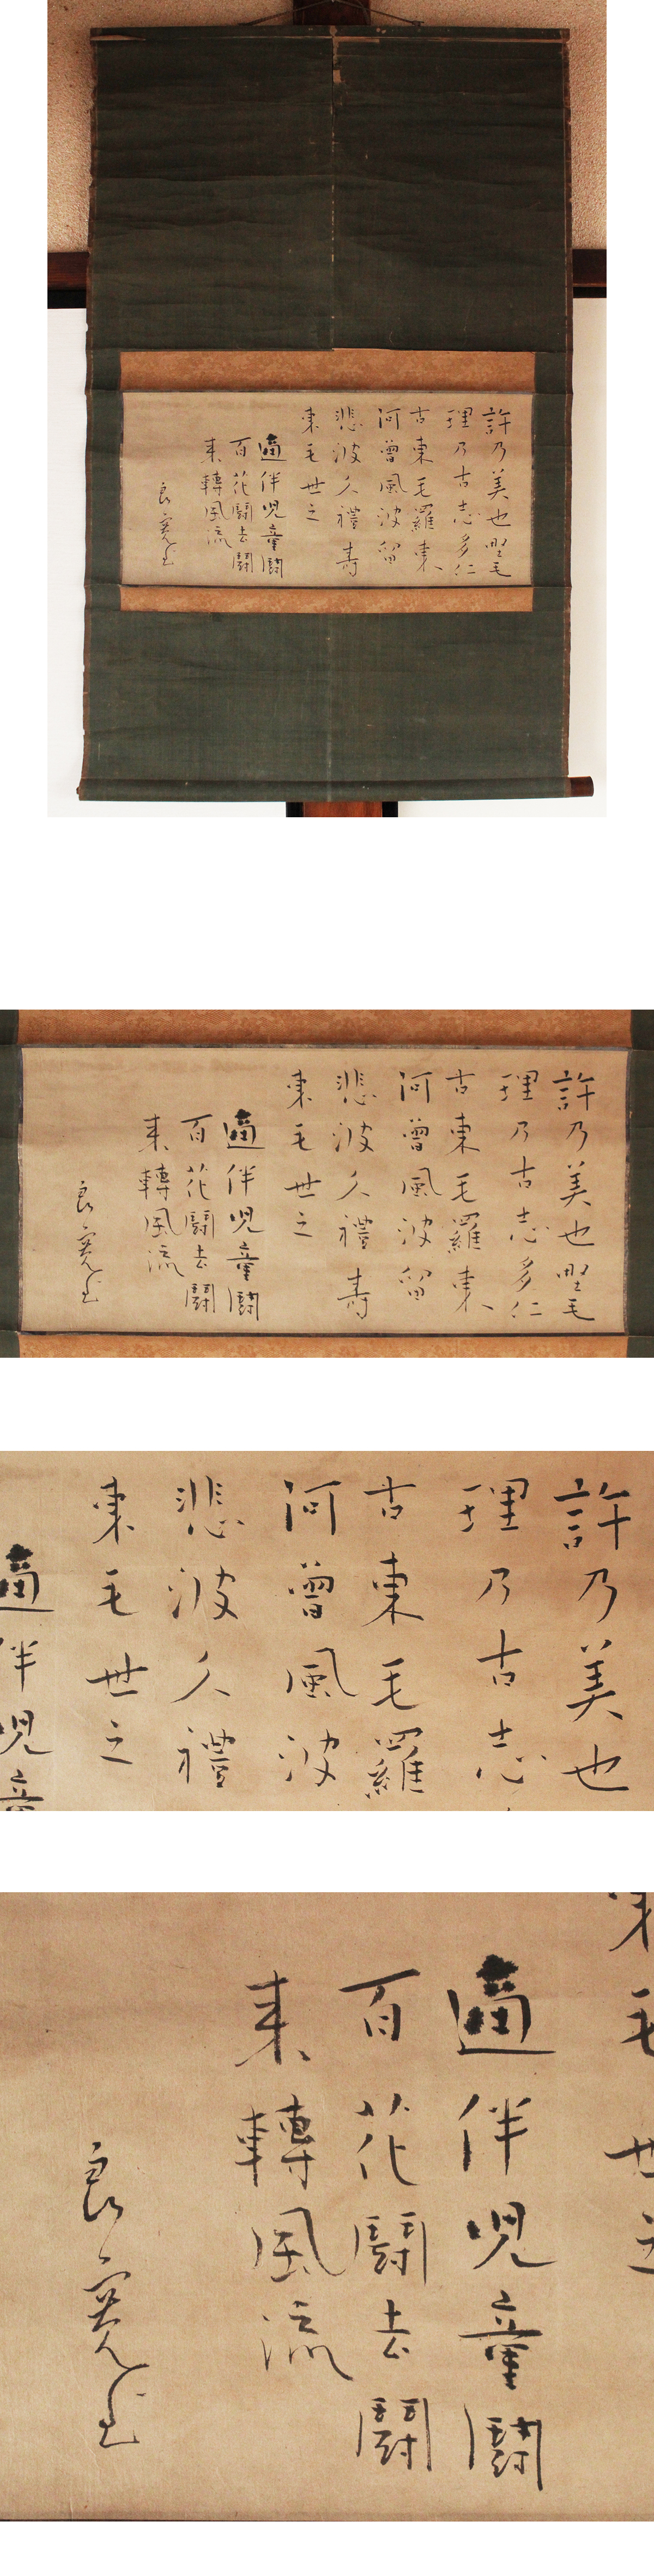 許乃美也野毛
理乃古志多仁
古東毛羅東
阿曽風波留
悲波久禮寿
東毛世之
適伴児童闘
百花闘去闘
来轉風流
良寛書
許乃美也野毛
理乃古志多仁
古東毛羅東
阿曽風波留
悲波久禮寿
東毛世之
適伴児童闘
百花闘去闘
来轉風流
良寛書
許乃美也
理乃古志
古東毛羅
阿曽風波
悲波久禮
東毛世之
適伴児童
東毛世之
適伴児童闘
百花闘去闘
来轉風流
良寛書